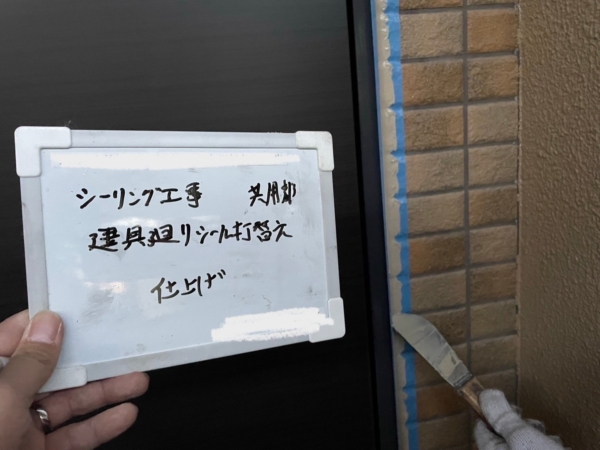 シーリング工事 共用部
建具廻りシール打替え
仕上げ